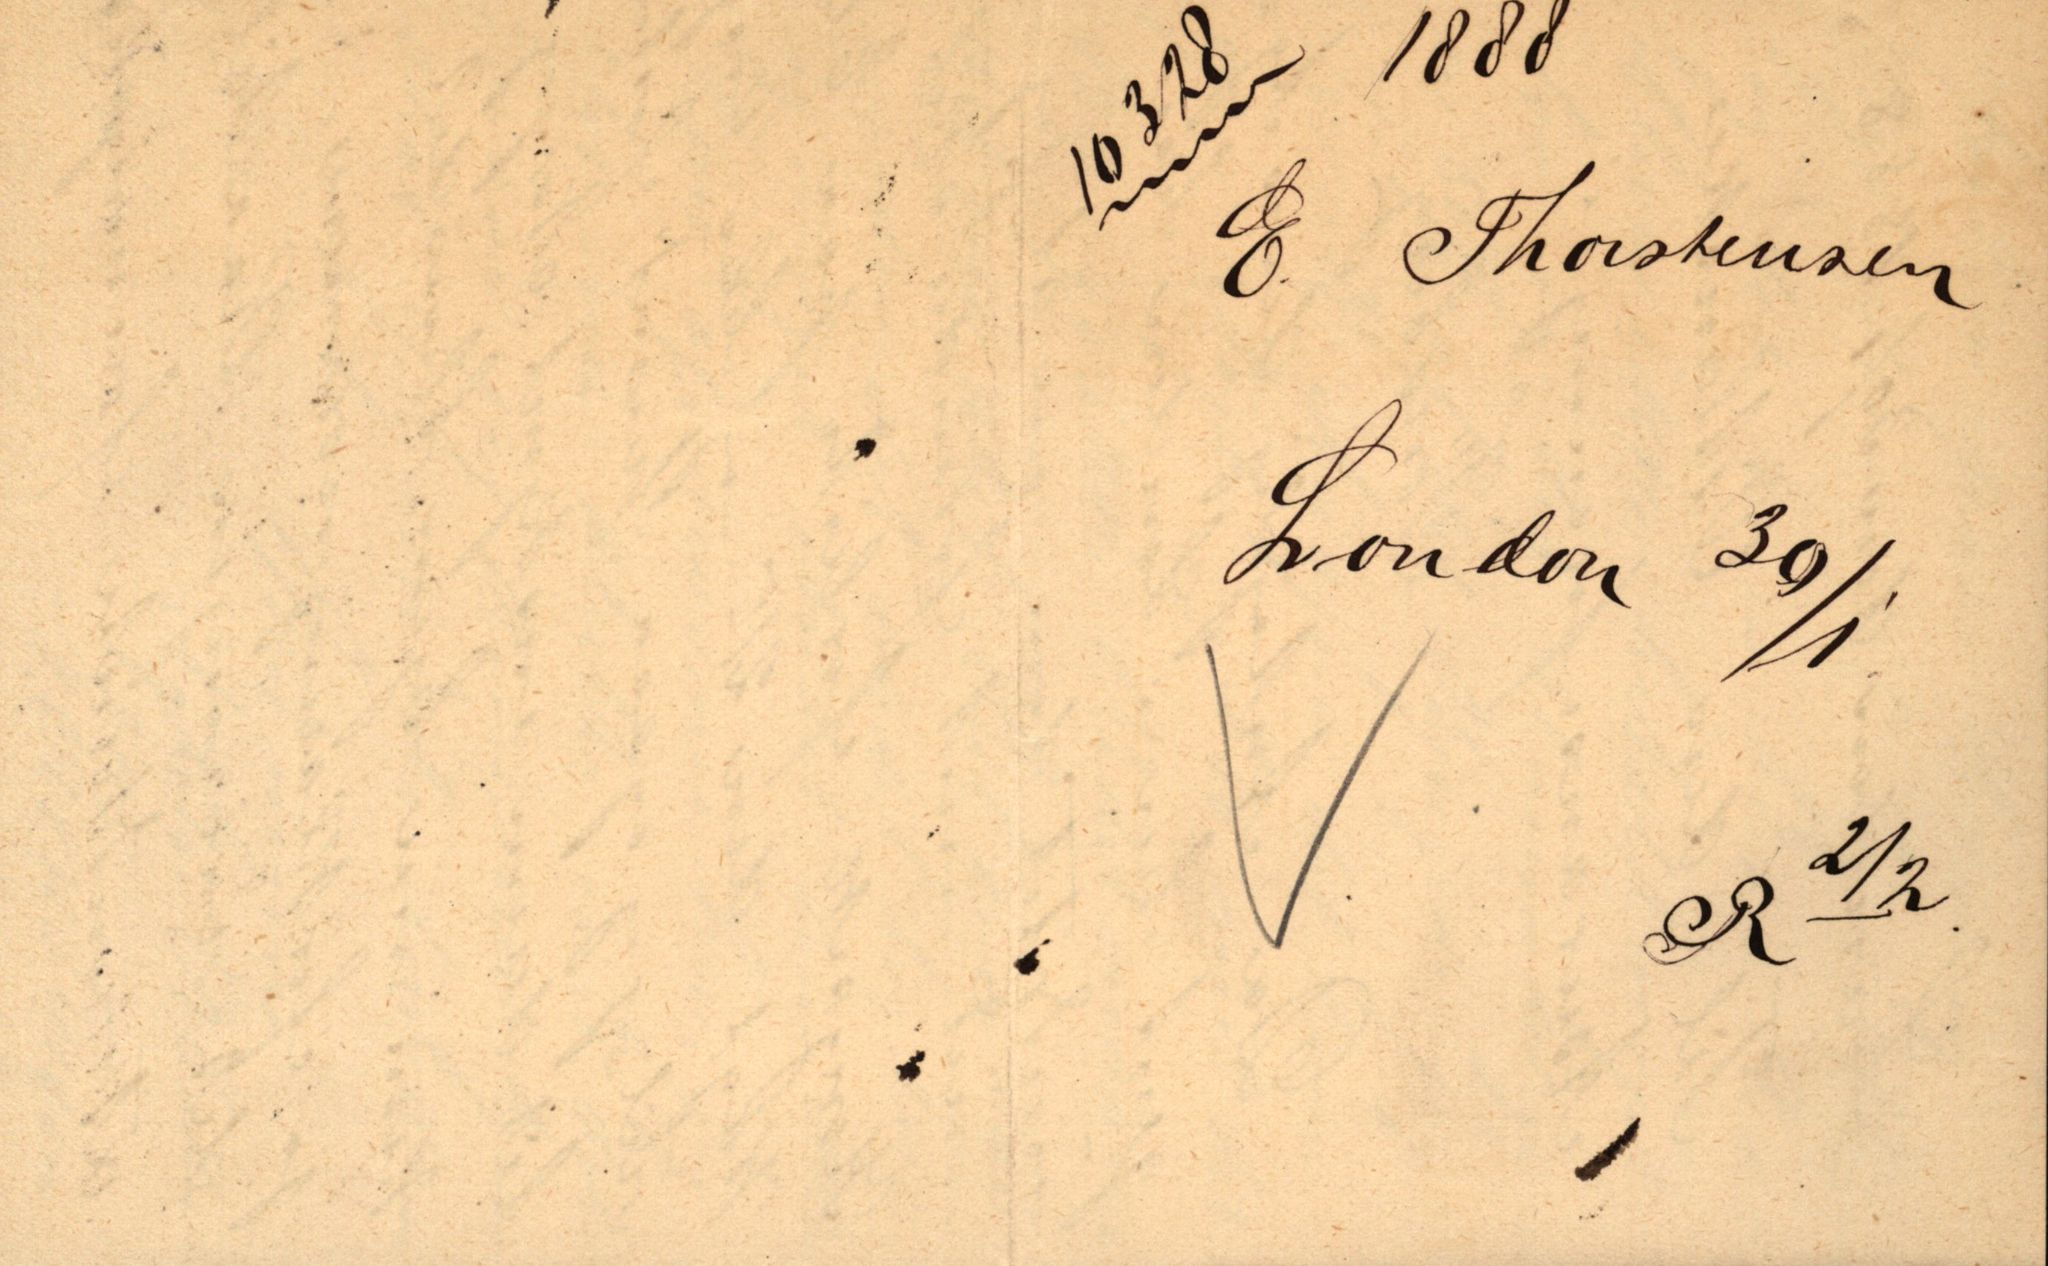 1888
10328
E. Thorstensen
London 30/1.
R 2/2.